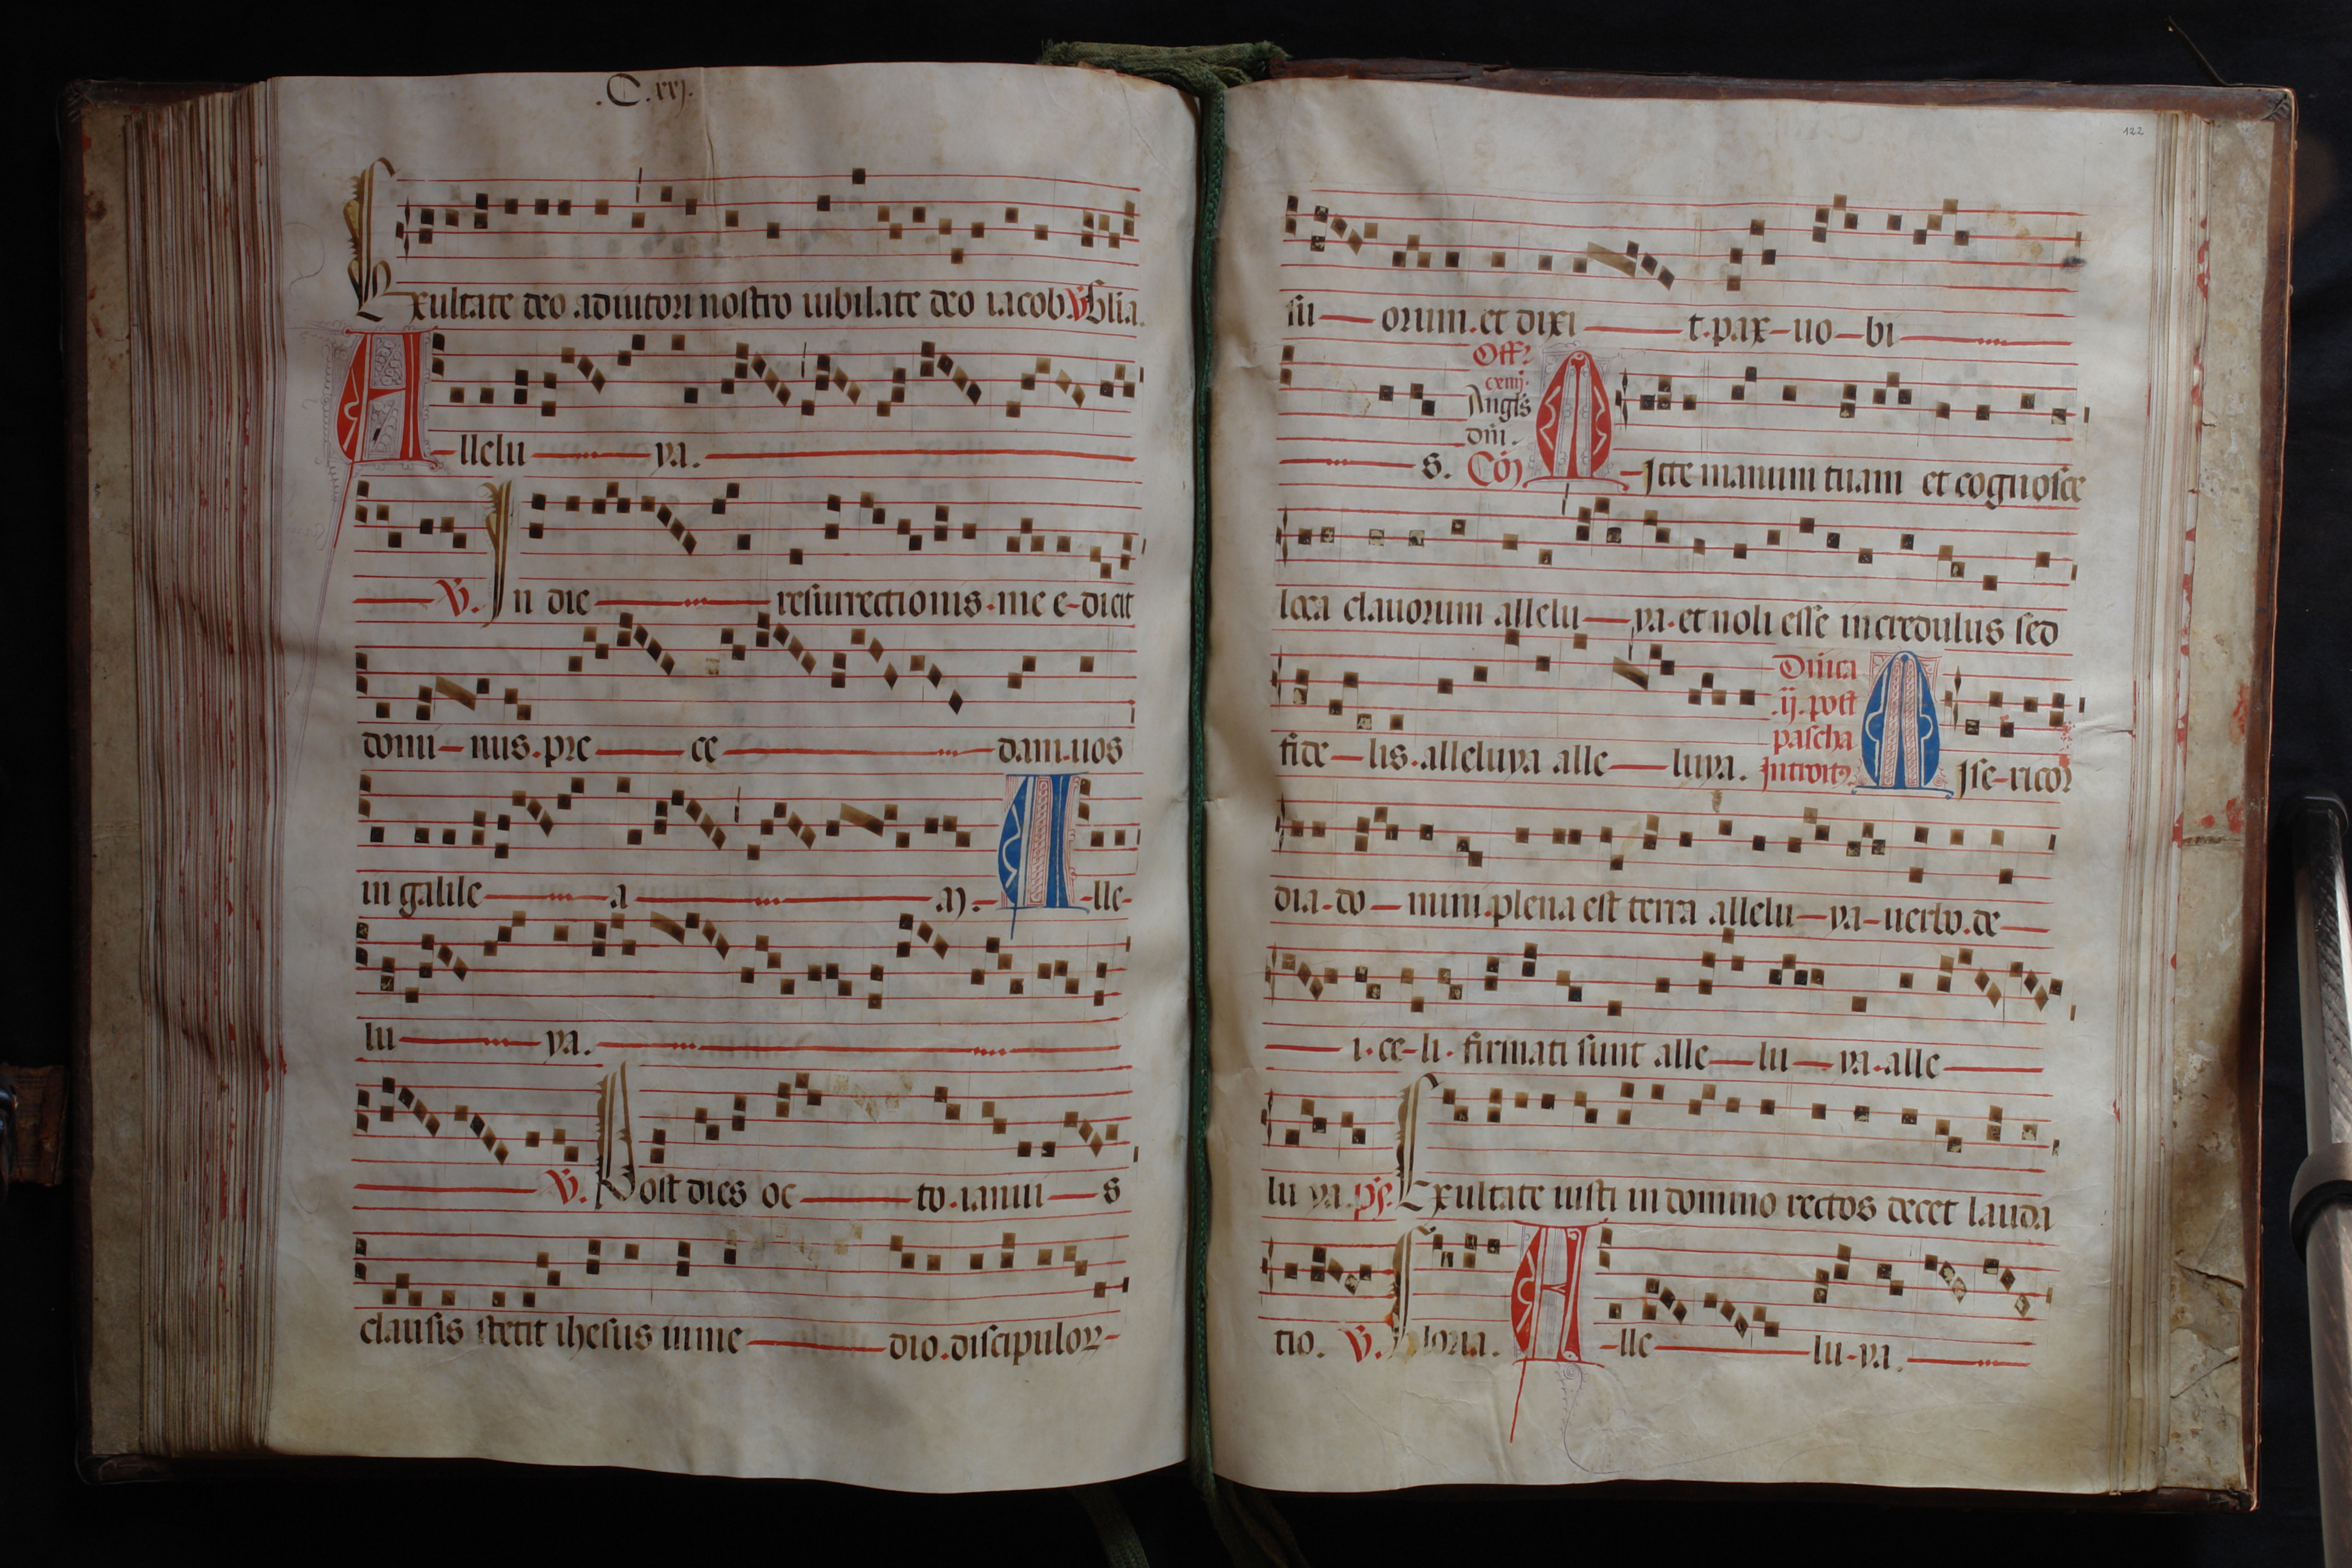 .C.xxj.
Exultate deo adiutori nostro iubilate deo iacob. V. Glia.
Allelu ya.
V. In die resurrectionis. me e-dicit
domi-nus. pre ce dam. uos
in galile a am. Alle-
lu ya.
V. Post dies oc to. ianui s
clausis stetit ihesus in me dio. discipulor-
122
su orum. et dixi t. pax-uo-bi
Off?
cxiiij.
Angls
dni.
s. Co? MItte manum tuam et cognosce
loca clauorum allelu ya. et noli esse incredulus sed
Dnica
.ij. post
pascha
fide lis. alleluya alle luya. Introit? MIse-ricor
dia-do mini. plena est terra allelu ya-uerbo. de
i. ce-li. firmati sunt alle lu ya. alle
lu ya. ps. Exultate iusti in domino rectos decet lauda
tio. V. Gloria. Alle lu-ya.